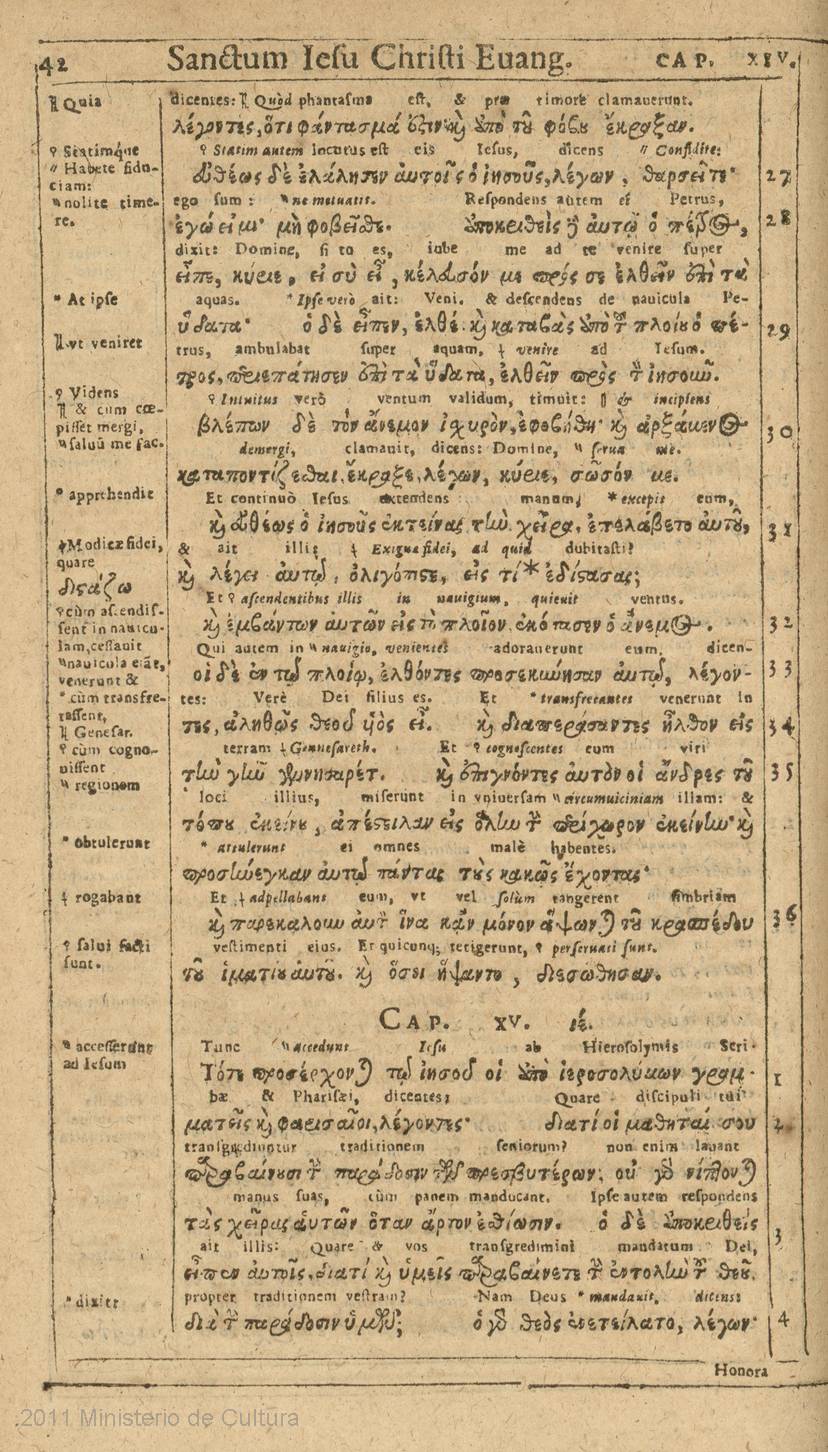 42 Sanctum Iesu Christi Euang. CAP. XIV.
¶ Quia
dicentes: ¶ Quòd phantasma est, & præ timore clamauerunt.
λέγοντες, ὅτι φάντασμά ἐστιν· καὶ ἀπὸ τοῦ φόβου ἔκραξαν.
♀ Statimque
♀ Statim autem locutus est eis Iesus, dicens // Confidite:
// Habete fiduciam:
εὐθέως δὲ ἐλάλησεν αὐτοῖς ὁ ἰησοῦς, λέγων, θαρσεῖτε· 27
" nolite timere.
ego sum: " ne metuatis. Respondens autem ei Petrus,
ἐγώ εἰμι· μὴ φοβεῖσθε. ἀποκριθεὶς δὲ αὐτῷ ὁ πέτρος, 28
dixit: Domine, si tu es, iube me ad te venire super
εἶπε, κύριε, εἰ σὺ εἶ, κέλευσόν με πρός σε ἐλθεῖν ἐπὶ τὰ
* At ipse
aquas. * Ipse verò ait: Veni. & descendens de nauicula Pe-
ὕδατα· ὁ δὲ εἶπεν, ἐλθέ. καὶ καταβὰς ἀπὸ τοῦ πλοίου ὁ πέ- 29
⸸ vt veniret
trus, ambulabat super aquam, ⸸ venire ad Iesum.
τρος, περιεπάτησεν ἐπὶ τὰ ὕδατα, ἐλθεῖν πρὸς τὸν ἰησοῦν.
♀ Videns
♀ Intuitus verò ventum validum, timuit: ¶ & incipiens
¶ & cum cœpisset mergi,
βλέπων δὲ τὸν ἄνεμον ἰσχυρὸν, ἐφοβήθη· καὶ ἀρξάμενος 30
" saluū me fac.
demergi, clamauit, dicens: Domine, " serua me.
καταποντίζεσθαι, ἔκραξε, λέγων, κύριε, σῶσόν με.
* apprehendit
Et continuò Iesus extendens manum, * excepit eum,
καὶ εὐθέως ὁ ἰησοῦς ἐκτείνας τὴν χεῖρα, ἐπελάβετο αὐτοῦ, 31
⸸ Modicæ fidei, quare
& ait illi: ⸸ Exigua fidei, ad quid dubitasti?
διςάζω
καὶ λέγει αὐτῷ, ὀλιγόπιστε, εἰς τί * ἐδίστασας;
♀ cùm ascendissent in nauiculam, cessauit
Et ♀ ascendentibus illis in nauigium, quieuit ventus.
καὶ ἐμβάντων αὐτῶν εἰς τὸ πλοῖον, ἐκόπασεν ὁ ἄνεμος. 32
" nauicula erāt, venerunt &
Qui autem in " nauigio, venientes adorauerunt eum, dicen-
οἱ δὲ ἐν τῷ πλοίῳ, ἐλθόντες προσεκύνησαν αὐτῷ, λέγον- 33
* cùm transfretassent,
tes: Verè Dei filius es. Et * transfretantes venerunt in
¶ Genesar.
τες, ἀληθῶς θεοῦ υἱὸς εἶ. καὶ διαπεράσαντες ἦλθον εἰς 34
♀ cùm cognouissent
terram ⸸ Gennesareth. Et ♀ cognoscentes eum viri
" regionem
τὴν γῆν γεννησαρέτ. καὶ ἐπιγνόντες αὐτὸν οἱ ἄνδρες τοῦ 35
loci illius, miserunt in vniuersam " circumuiciniam illam: &
τόπου ἐκείνου, ἀπέστειλαν εἰς ὅλην τὴν περίχωρον ἐκείνην· καὶ
* obtulerunt
* attulerunt ei omnes malè habentes.
προσήνεγκαν αὐτῷ πάντας τοὺς κακῶς ἔχοντας·
⸸ rogabant
Et ⸸ adpellabant eum, vt vel solùm tangerent fimbriam
καὶ παρεκάλουν αὐτὸν ἵνα κἂν μόνον ἅψωνται τοῦ κρασπέδου 36
♀ salui facti sunt.
vestimenti eius. Et quicunq; tetigerunt, ♀ perseruati sunt.
τοῦ ἱματίου αὐτοῦ. καὶ ὅσοι ἥψαντο, διεσώθησαν.
CAP. XV. ιέ.
" accesserunt ad Iesum
Tunc " accedunt Iesu ab Hierosolymis Scri-
Τότε προσέρχονται τῷ ἰησοῦ οἱ ἀπὸ ἱεροσολύμων γραμ- 1
bæ & Pharisæi, dicentes: Quare discipuli tui
ματεῖς καὶ φαρισαῖοι, λέγοντες· διατί οἱ μαθηταί σου 2
transgrediuntur traditionem seniorum? non enim lauant
παραβαίνουσι τὴν παράδοσιν τῶν πρεσβυτέρων; οὐ γὰρ νίπτονται
manus suas, cùm panem manducant. Ipse autem respondens
τὰς χεῖρας αὑτῶν ὅταν ἄρτον ἐσθίωσιν. ὁ δὲ ἀποκριθεὶς 3
ait illis: Quare & vos transgredimini mandatum Dei,
εἶπεν αὐτοῖς, διατί καὶ ὑμεῖς παραβαίνετε τὴν ἐντολὴν τοῦ θεοῦ,
* dixit
propter traditionem vestram? Nam Deus * mandauit, dicens:
διὰ τὴν παράδοσιν ὑμῶν; ὁ γὰρ θεὸς ἐνετείλατο, λέγων· 4
Honora
2011 Ministerio de Cultura